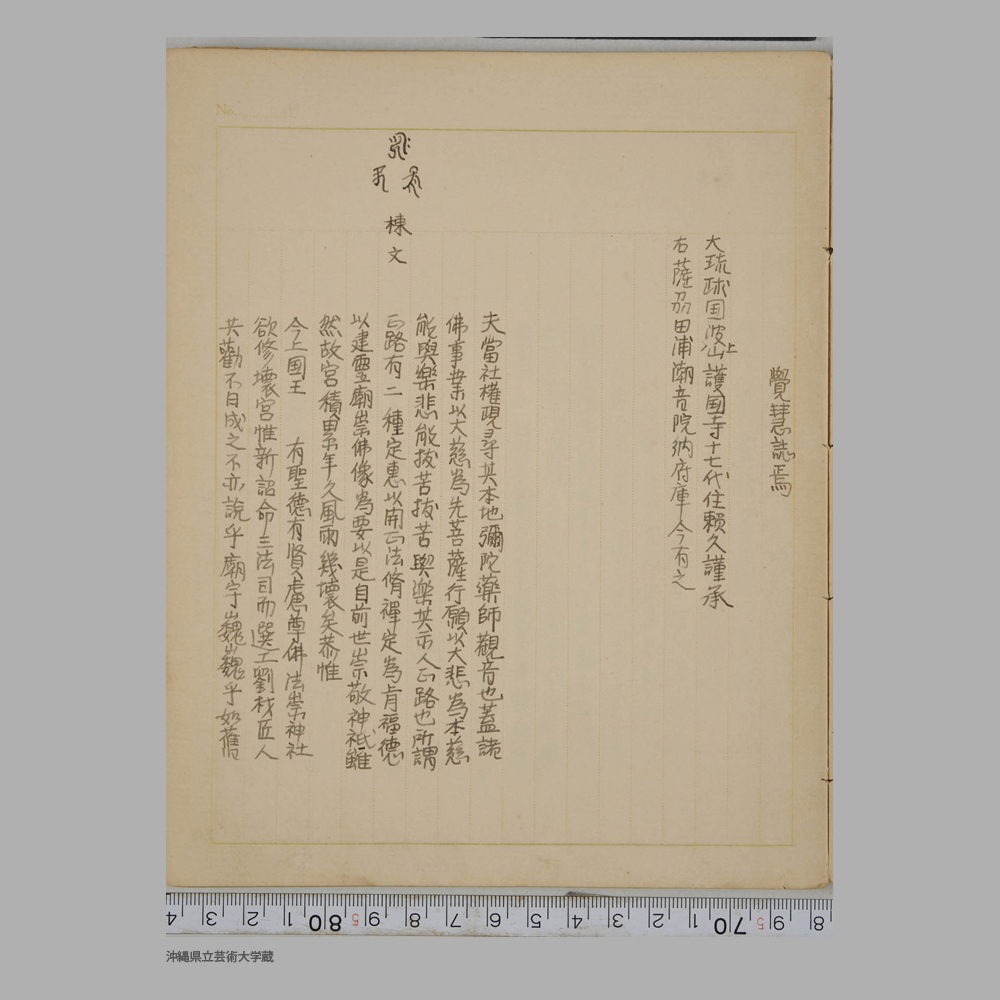 覺慧誌焉
大琉球国波上山護国寺十七代住賴久謹承
右薩刕田浦潮音院納府庫今有之
棟文
夫當社權現尋其本地彌陀藥師觀音也蓋諸
佛事業以大慈為先菩薩行願以大悲為本慈
能與樂悲能拔苦拔苦與樂共示人正路也所謂
正路有二種定惠以開正法脩禪定為肯福德
以建靈廟崇佛像為要以是自前世崇敬神祗雖
然故宮積累年久風雨幾壞矣恭惟
今上国王 有聖德有賢慮尊佛法崇神社
欲修壞宮惟新詔命三法司而選工劉材匠人
共勸不日成之不亦說乎廟宇巍巍乎如舊
No.
4 3 2 1 80 9 8 7 6 5 4 3 2 1 70 9 8
沖縄県立芸術大学蔵